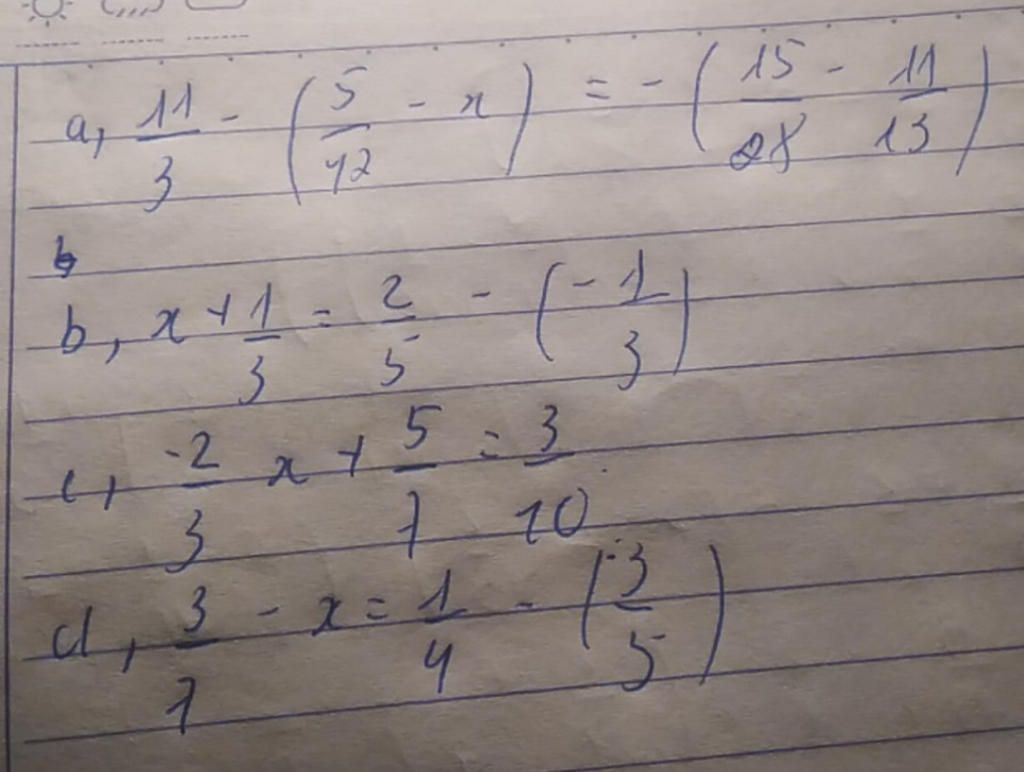 a, 11/3 - (5/42 - x) = - (15/28 - 11/13)
b, x + 1/3 = 2/5 - (-1/3)
c, -2/3 x + 5/7 = 3/10
d, 3/7 - x = 1/4 - (-3/5)